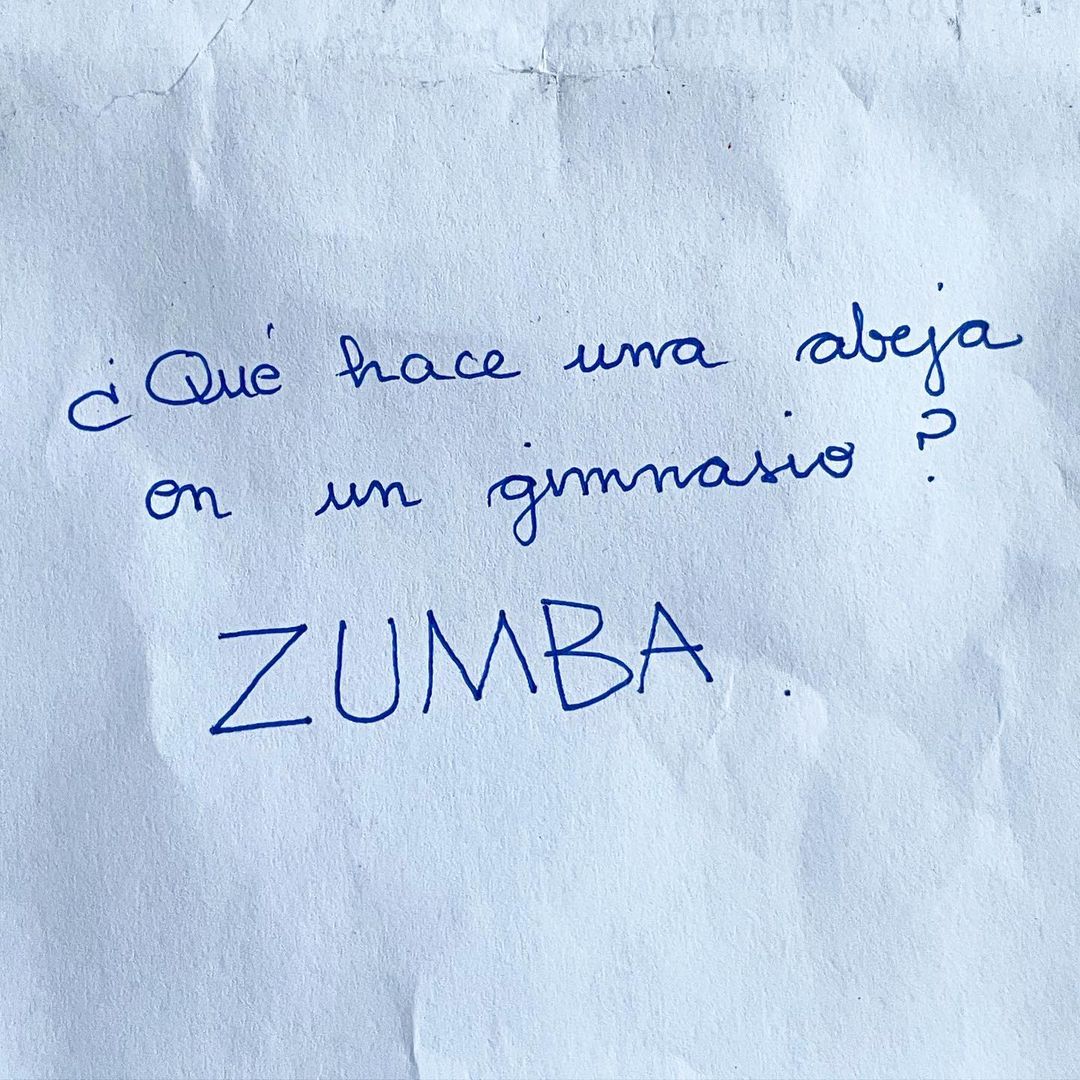 ¿Qué hace una abeja
en un gimnasio?
ZUMBA.